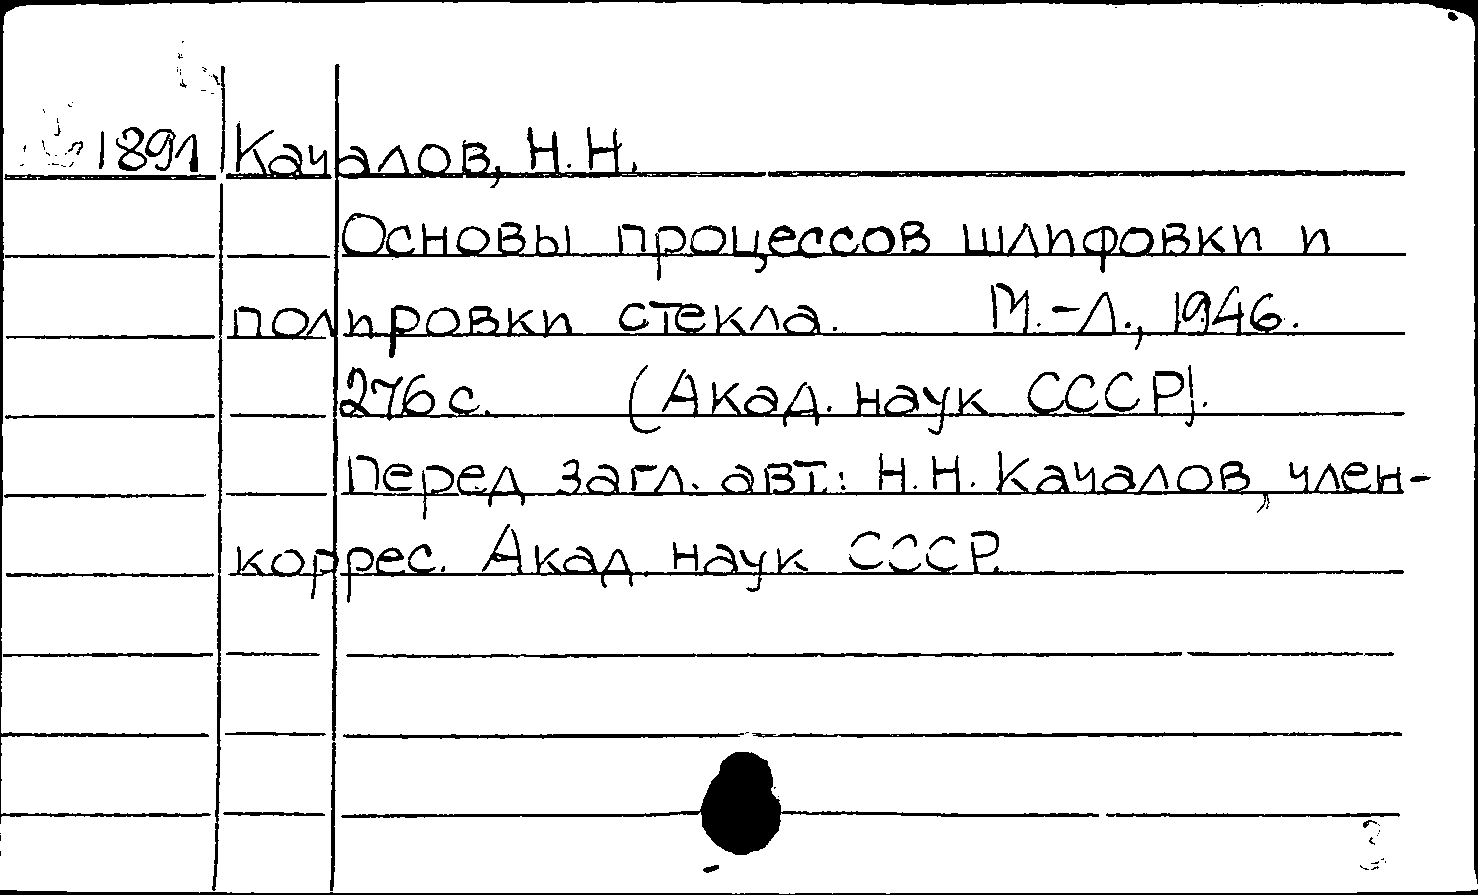 1891 Качалов, Н.Н.
Основы процессов шлифовки и
полировки стекла. М.-Л., 1946.
276 с. (Акад. наук СССР).
Перед загл. авт.: Н.Н. Качалов, член-
коррес. Акад. наук СССР.
3